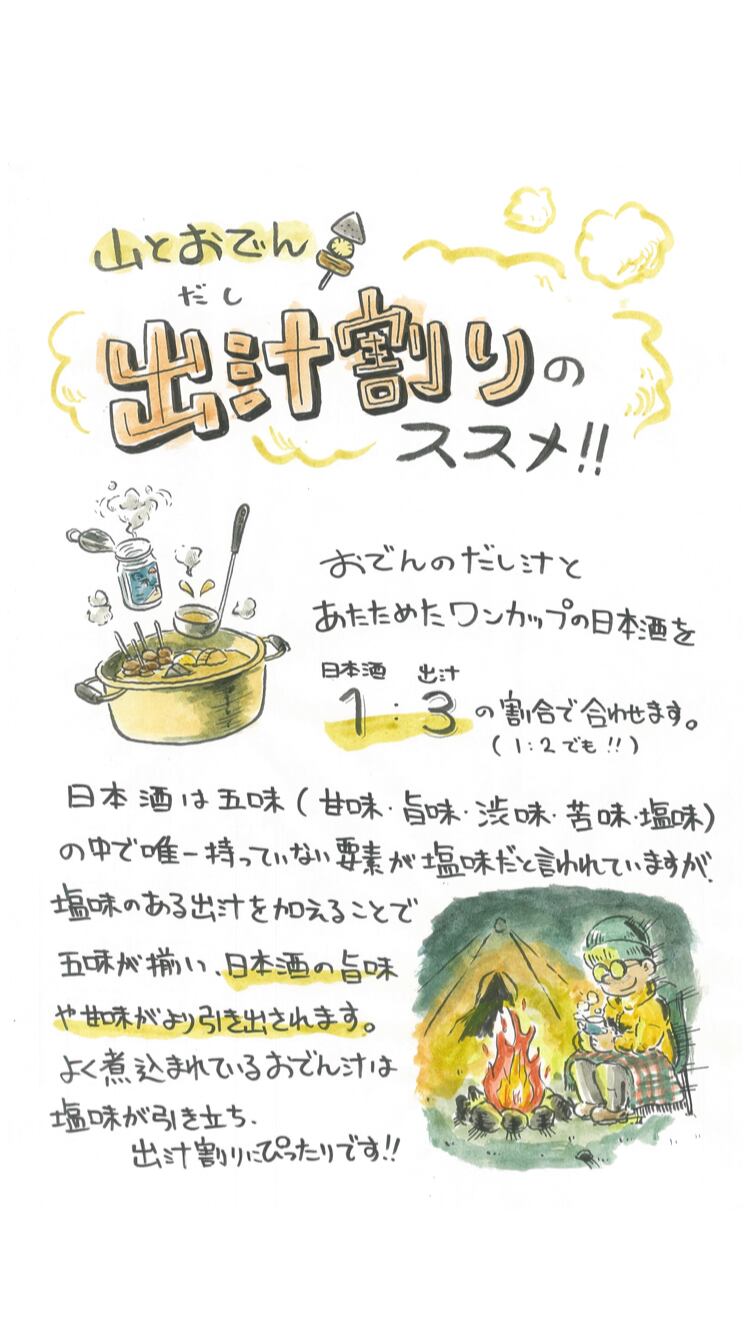 山とおでん
だし
出汁割りの
ススメ!!
おでんのだし汁と
あたためたワンカップの日本酒を
日本酒 出汁
1:3の割合で合わせます。
(1:2でも!!)
日本酒は五味(甘味・旨味・渋味・苦味・塩味)
の中で唯一持っていない要素が塩味だと言われていますが、
塩味のある出汁を加えることで
五味が揃い、日本酒の旨味
や甘味がより引き出されます。
よく煮込まれているおでん汁は
塩味が引き立ち、
出汁割りにぴったりです!!